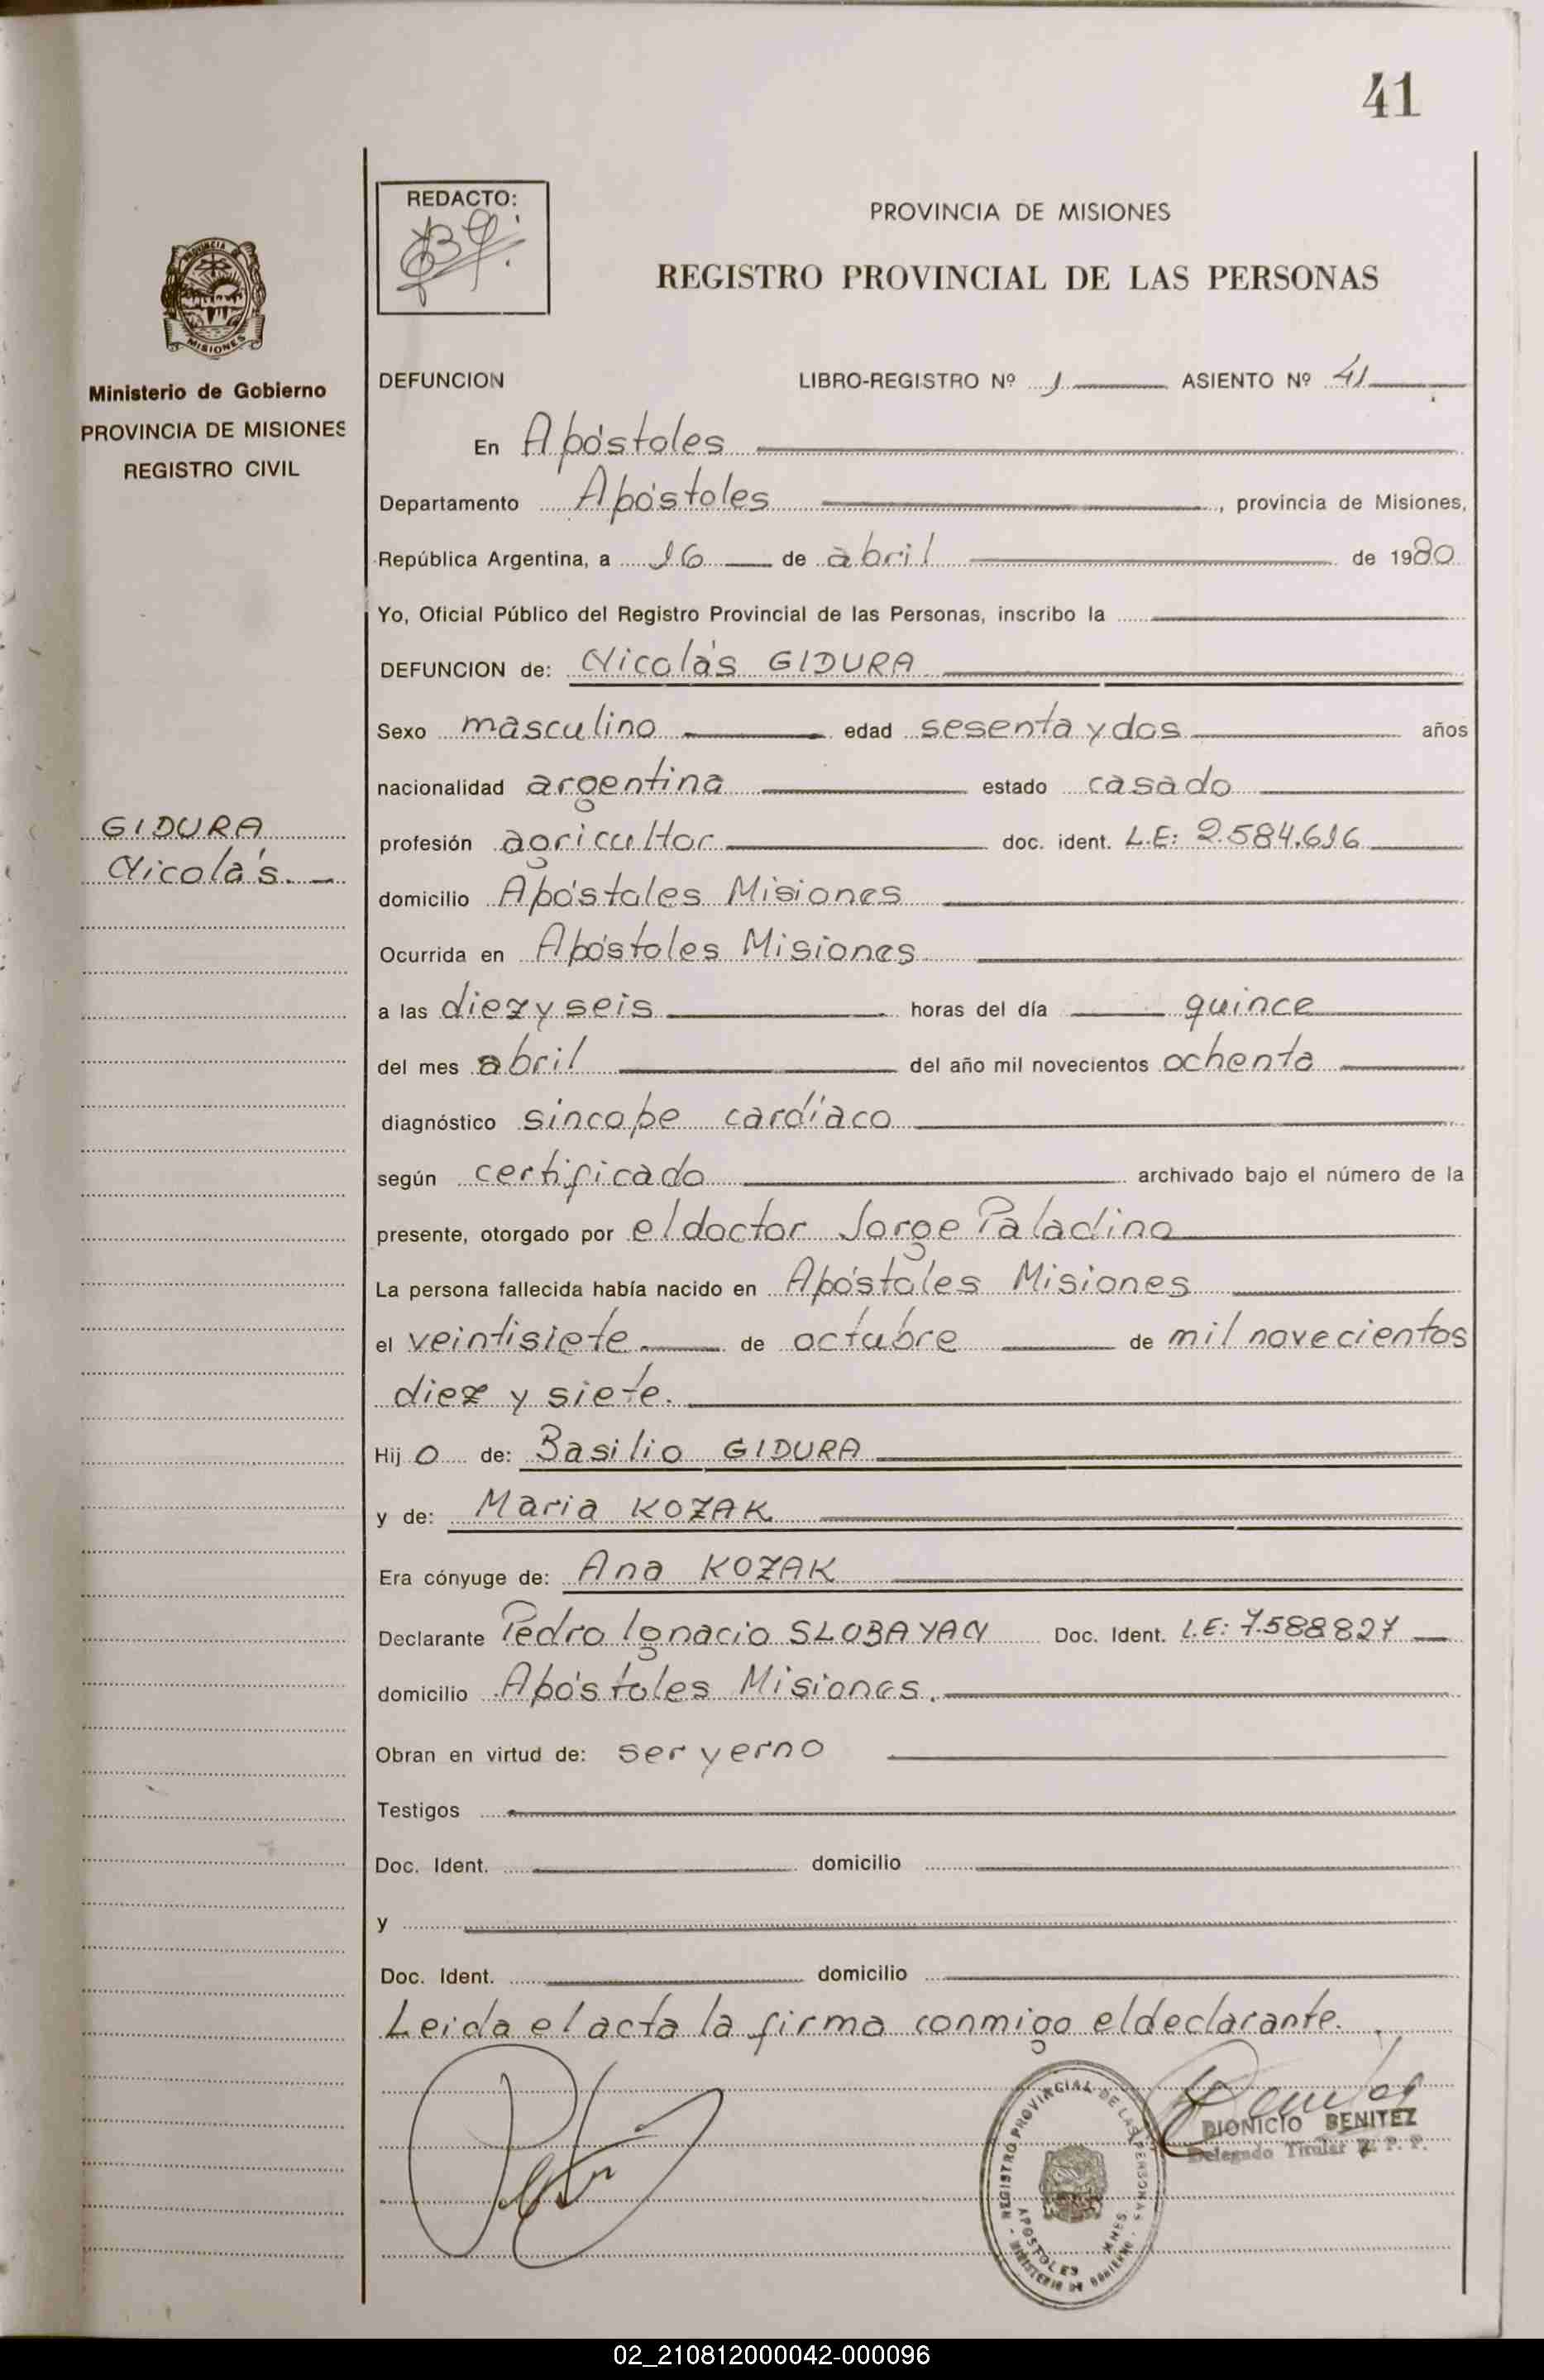 41
REDACTO:
PROVINCIA DE MISIONES
REGISTRO PROVINCIAL DE LAS PERSONAS
PROVINCIA DE
MISIONES
Ministerio de Gobierno
PROVINCIA DE MISIONES
REGISTRO CIVIL
DEFUNCION LIBRO-REGISTRO Nº 1 ASIENTO Nº 41
En Apóstoles
Departamento Apóstoles, provincia de Misiones,
República Argentina, a 16 de abril de 1980
Yo, Oficial Público del Registro Provincial de las Personas, inscribo la
DEFUNCION de: Nicolás GIDURA
Sexo masculino edad sesenta y dos años
nacionalidad argentina estado casado
GIDURA
Nicolás.
profesión agricultor doc. ident. L.E: 2.584.616
domicilio Apóstoles Misiones
Ocurrida en Apóstoles Misiones
a las diez y seis horas del día quince
del mes abril del año mil novecientos ochenta
diagnóstico sincope cardíaco
según certificado archivado bajo el número de la
presente, otorgado por el doctor Jorge Paladino
La persona fallecida había nacido en Apóstoles Misiones
el veintisiete de octubre de mil novecientos
diez y siete.
Hij o de: Basilio GIDURA
y de: Maria KOZAK
Era cónyuge de: Ana KOZAK
Declarante Pedro Ignacio SLOBAYAN Doc. Ident. L.E: 7.588.827
domicilio Apóstoles Misiones.
Obran en virtud de: ser yerno
Testigos
Doc. Ident. domicilio
y
Doc. Ident. domicilio
Leida el acta la firma conmigo el declarante.
REGISTRO PROVINCIAL DE LAS PERSONAS
MINISTERIO DE GOBIERNO
APOSTOLES MNES
DIONICIO BENITEZ
Delegado Titular R. P. P.
02_210812000042-000096